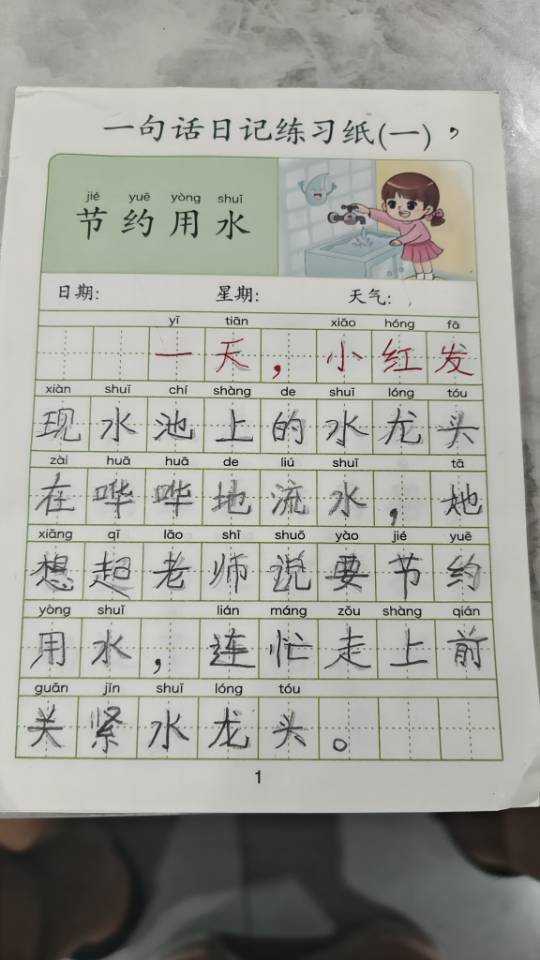 一句话日记练习纸(一)
jié yuē yòng shuǐ
节约用水
日期: 星期: 天气:
yī tiān xiǎo hóng fā
一天，小红发
xiàn shuǐ chí shàng de shuǐ lóng tóu
现水池上的水龙头
zài huā huā de liú shuǐ tā
在哗哗地流水，她
xiǎng qǐ lǎo shī shuō yào jié yuē
想起老师说要节约
yòng shuǐ lián máng zǒu shàng qián
用水，连忙走上前
guān jǐn shuǐ lóng tóu
关紧水龙头。
1